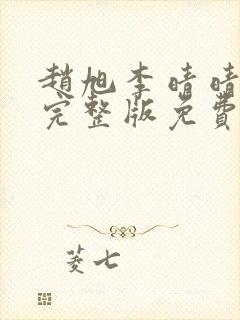 趙旭李晴晴
完整版免費
菱七